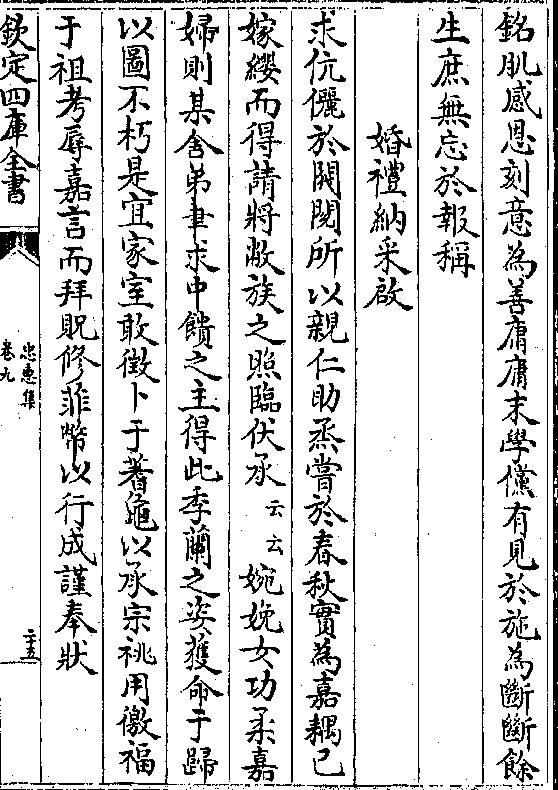 銘肌感恩刻意為善庸庸末學儻有見於施為斷斷餘
生庶無忘於報稱
婚禮納采啟
求伉儷於閥閱所以親仁助烝嘗於春秋實為嘉耦已
嫁纓而得請將敝族之照臨伏承云云婉娩女功柔嘉
婦則某舍弟聿求中饋之主得此季蘭之姿獲命于歸
以圖不朽是宜家室敢徴卜于蓍龜以承宗祧用徼福
于祖考辱嘉言而拜貺修菲幣以行成謹奉狀
欽定四庫全書
忠惠集
卷九
二十五